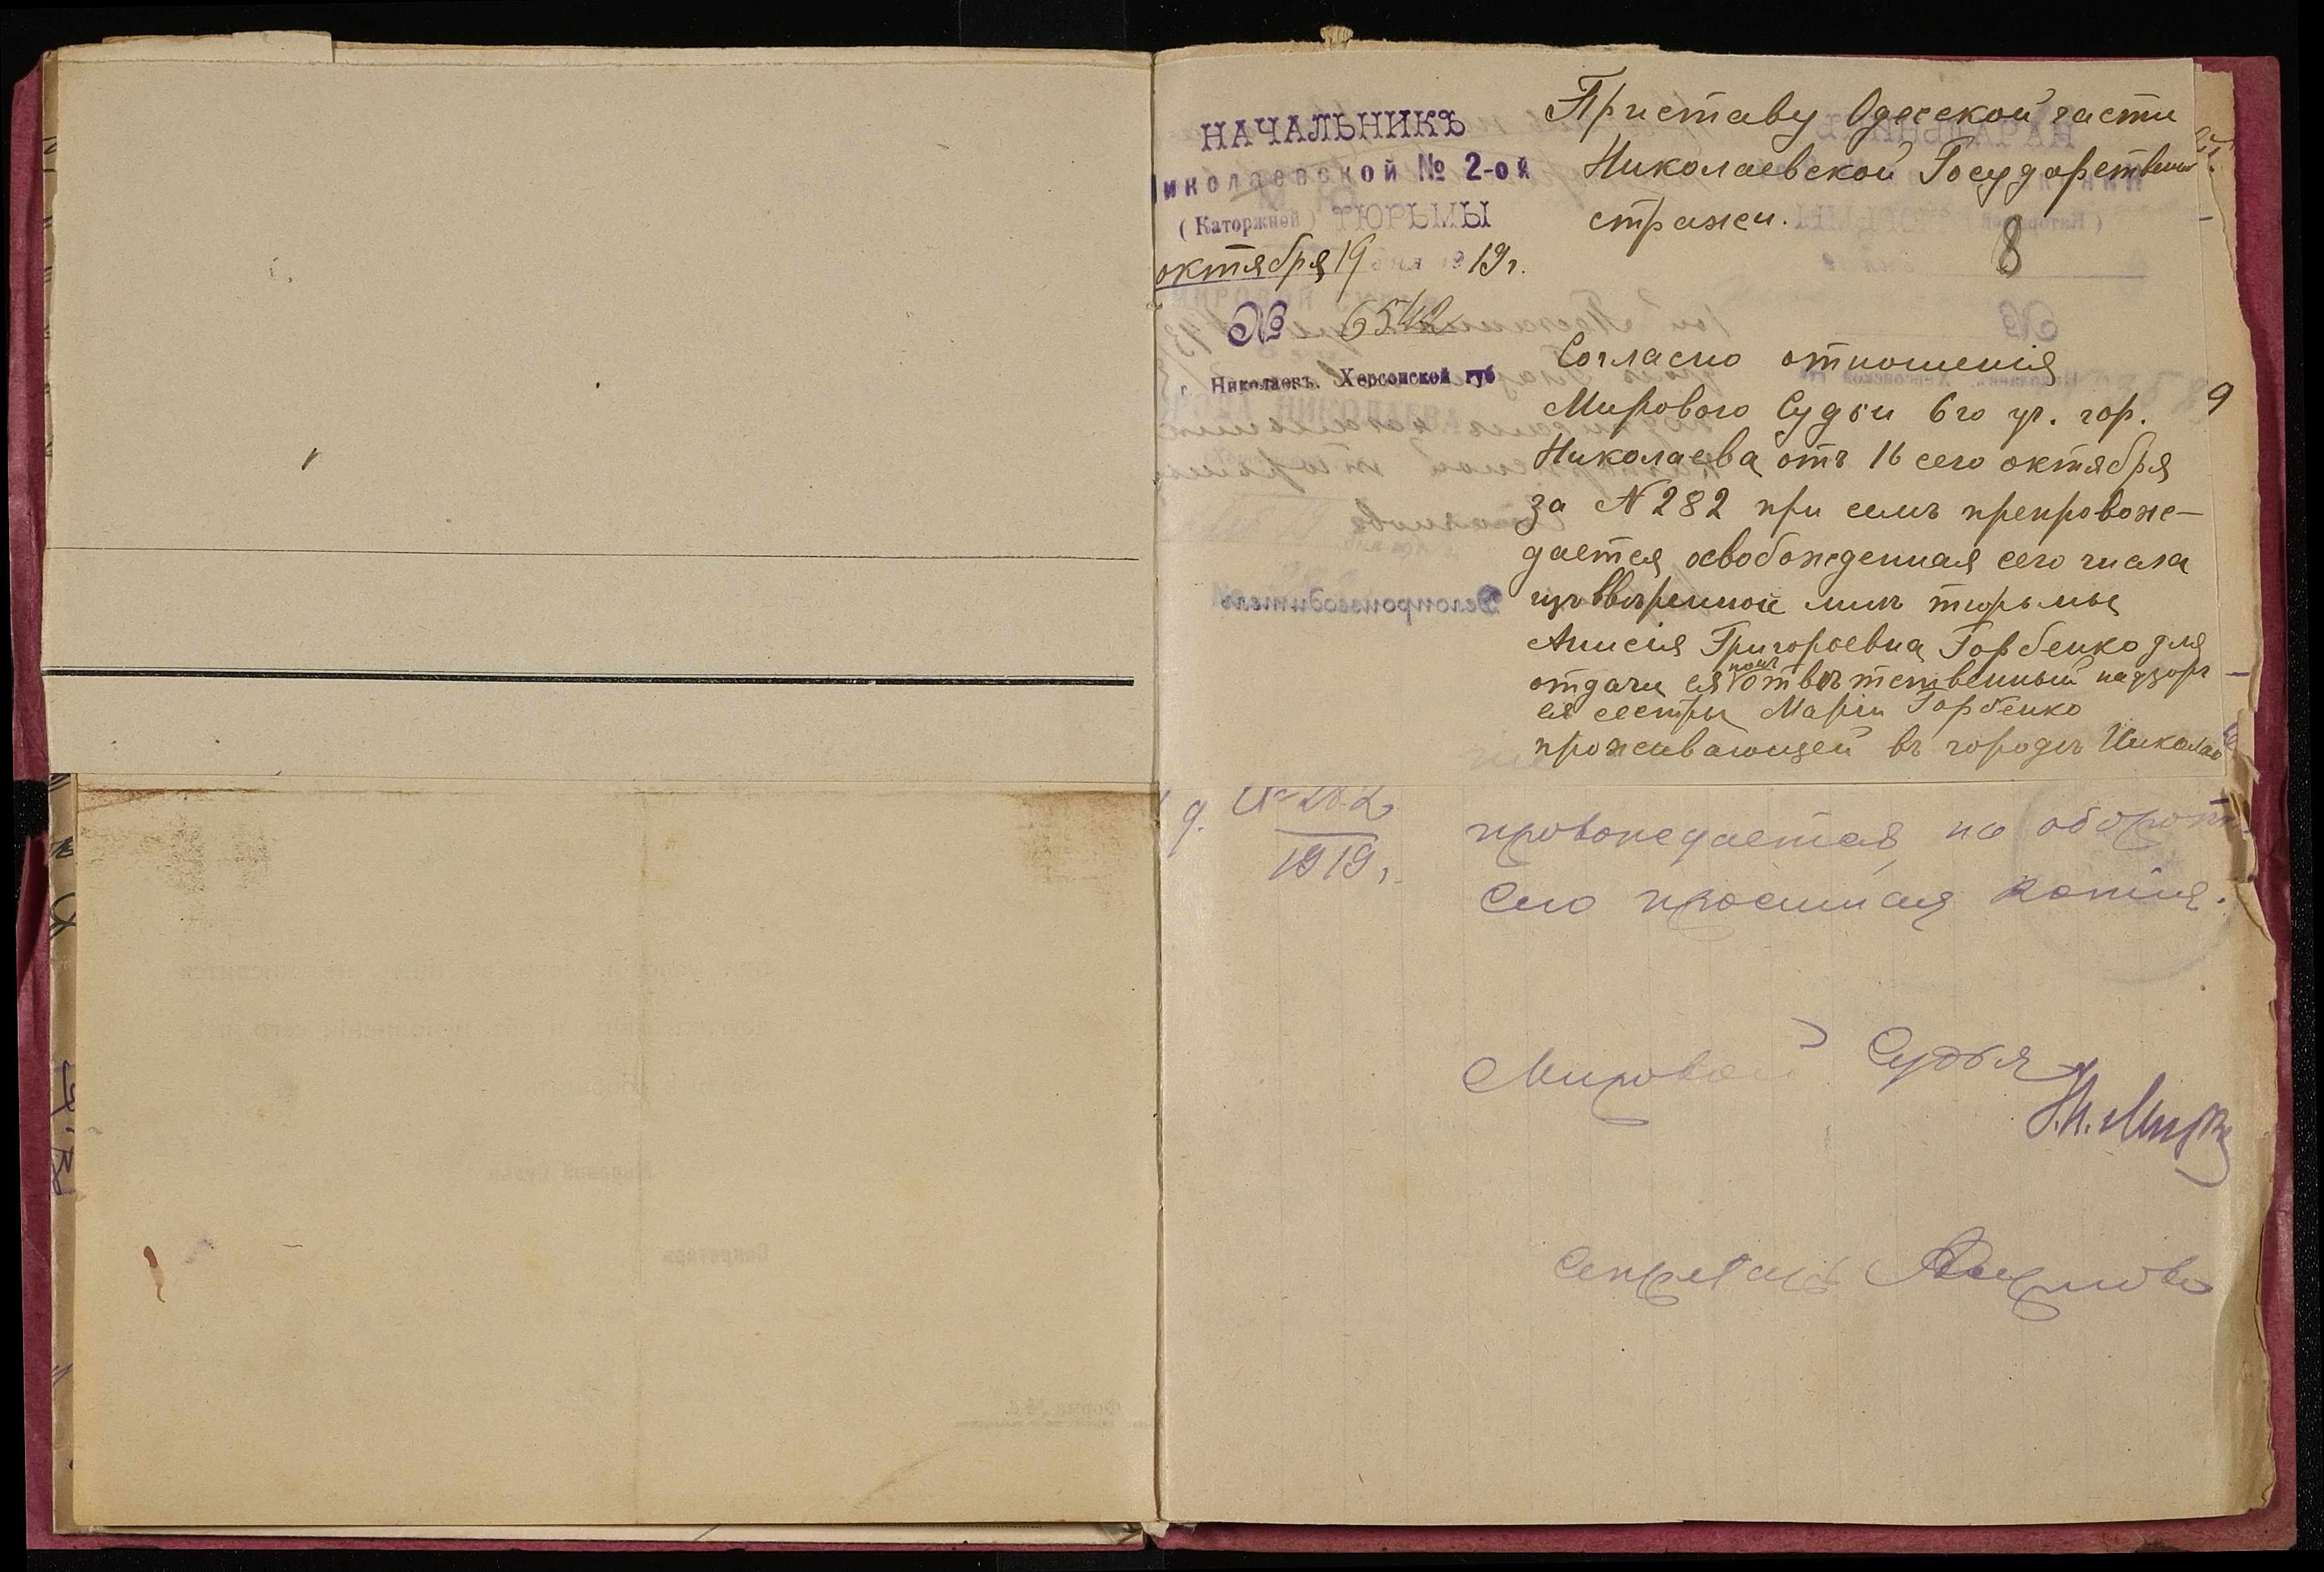 НАЧАЛЬНИКЪ
иколаевской № 2-ой
(Каторжной) ТЮРЬМЫ
октября 19 дня 1919 г.
№ 6542
г. Николаевъ. Херсонской губ
Приставу Одесской части
Николаевской Государствен
стражи.
8
9
Согласно отношенія
Мирового Судьи 6го уч. гор.
Николаева отъ 16 сего октября
за N 282 при семъ препровож-
дается освобожденная сего числа
изъ ввѣренной мнѣ тюрьмы
Анисія Григорьевна Горбенко для
отдачи ея подъ отвѣтственный надзоръ
ея сестры Маріи Горбенко
проживающей въ городѣ Николае
д. № 282
1919 г.
провождается на оборотѣ
сего просимая копія.
Мировой Судья
Секретарь
Делопроизводитель